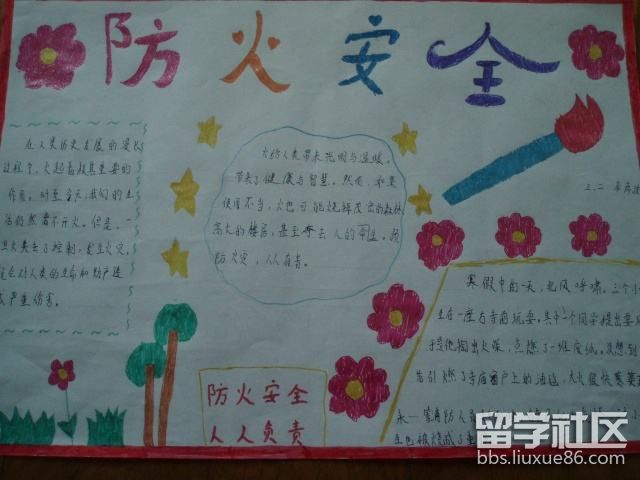 防火安全
在人类历史发展的漫长
过程中，火起着极其重要的
作用。时至今天，我们的生
活仍然离不开火。但是，一
旦火失去了控制，发生火灾，
就会对人类的生命和财产造
成严重伤害。
火给人类带来光明与温暖，
带来了健康与智慧。然而，如果
使用不当，火也可能烧掉茂密的森林
高大的楼房，甚至夺去人的
防火灾，人人有责。
三、二
寒假中的一天，北风呼啸。三个小
生在一座古寺前玩耍。其中一个同学提出要
于是他掏出火柴，点燃了一堆废纸。没想到
告引燃了寺庙窗户上的油毡，大火很快蔓
永一 消防人员
防火安全
人人负责
留学社区
bbs.liuxue86.com